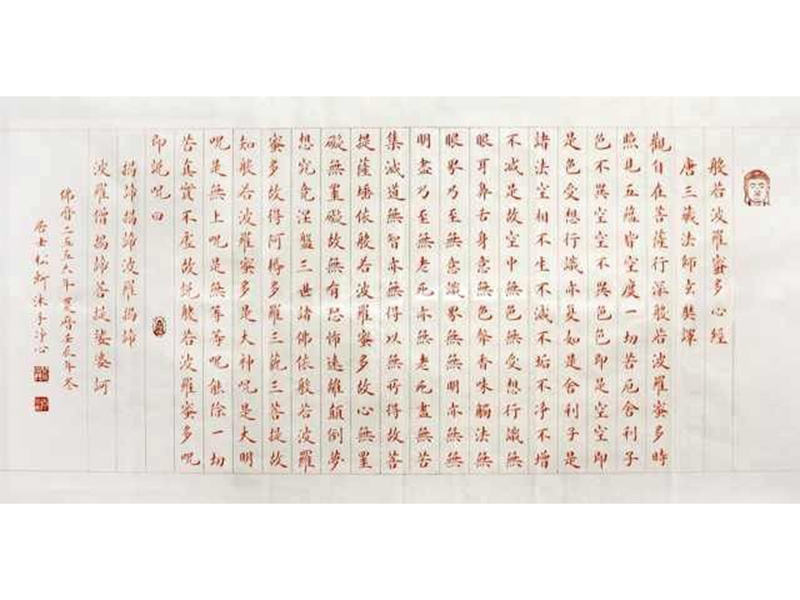 般若波羅蜜多心經
唐三藏法師玄奘譯
觀自在菩薩行深般若波羅蜜多時
照見五蘊皆空度一切苦厄舍利子
色不異空空不異色色即是空空即
是色受想行識亦復如是舍利子是
諸法空相不生不滅不垢不净不增
不減是故空中無色無受想行識無
眼耳鼻舌身意無色聲香味觸法無
眼界乃至無意識界無無明亦無無
明盡乃至無老死亦無老死盡無苦
集滅道無智亦無得以無所得故菩
提薩埵依般若波羅蜜多故心無罣
礙無罣礙故無有恐怖遠離顛倒夢
想究竟涅盤三世諸佛依般若波羅
蜜多故得阿耨多羅三藐三菩提故
知般若波羅蜜多是大神呪是大明
呪是無上呪是無等等呪能除一切
苦真實不虛故說般若波羅蜜多呪
即說呪曰
揭諦揭諦波羅揭諦
波羅僧揭諦菩提娑婆訶
佛曆二五五六年農曆壬辰年冬
居士松卿沐手净心